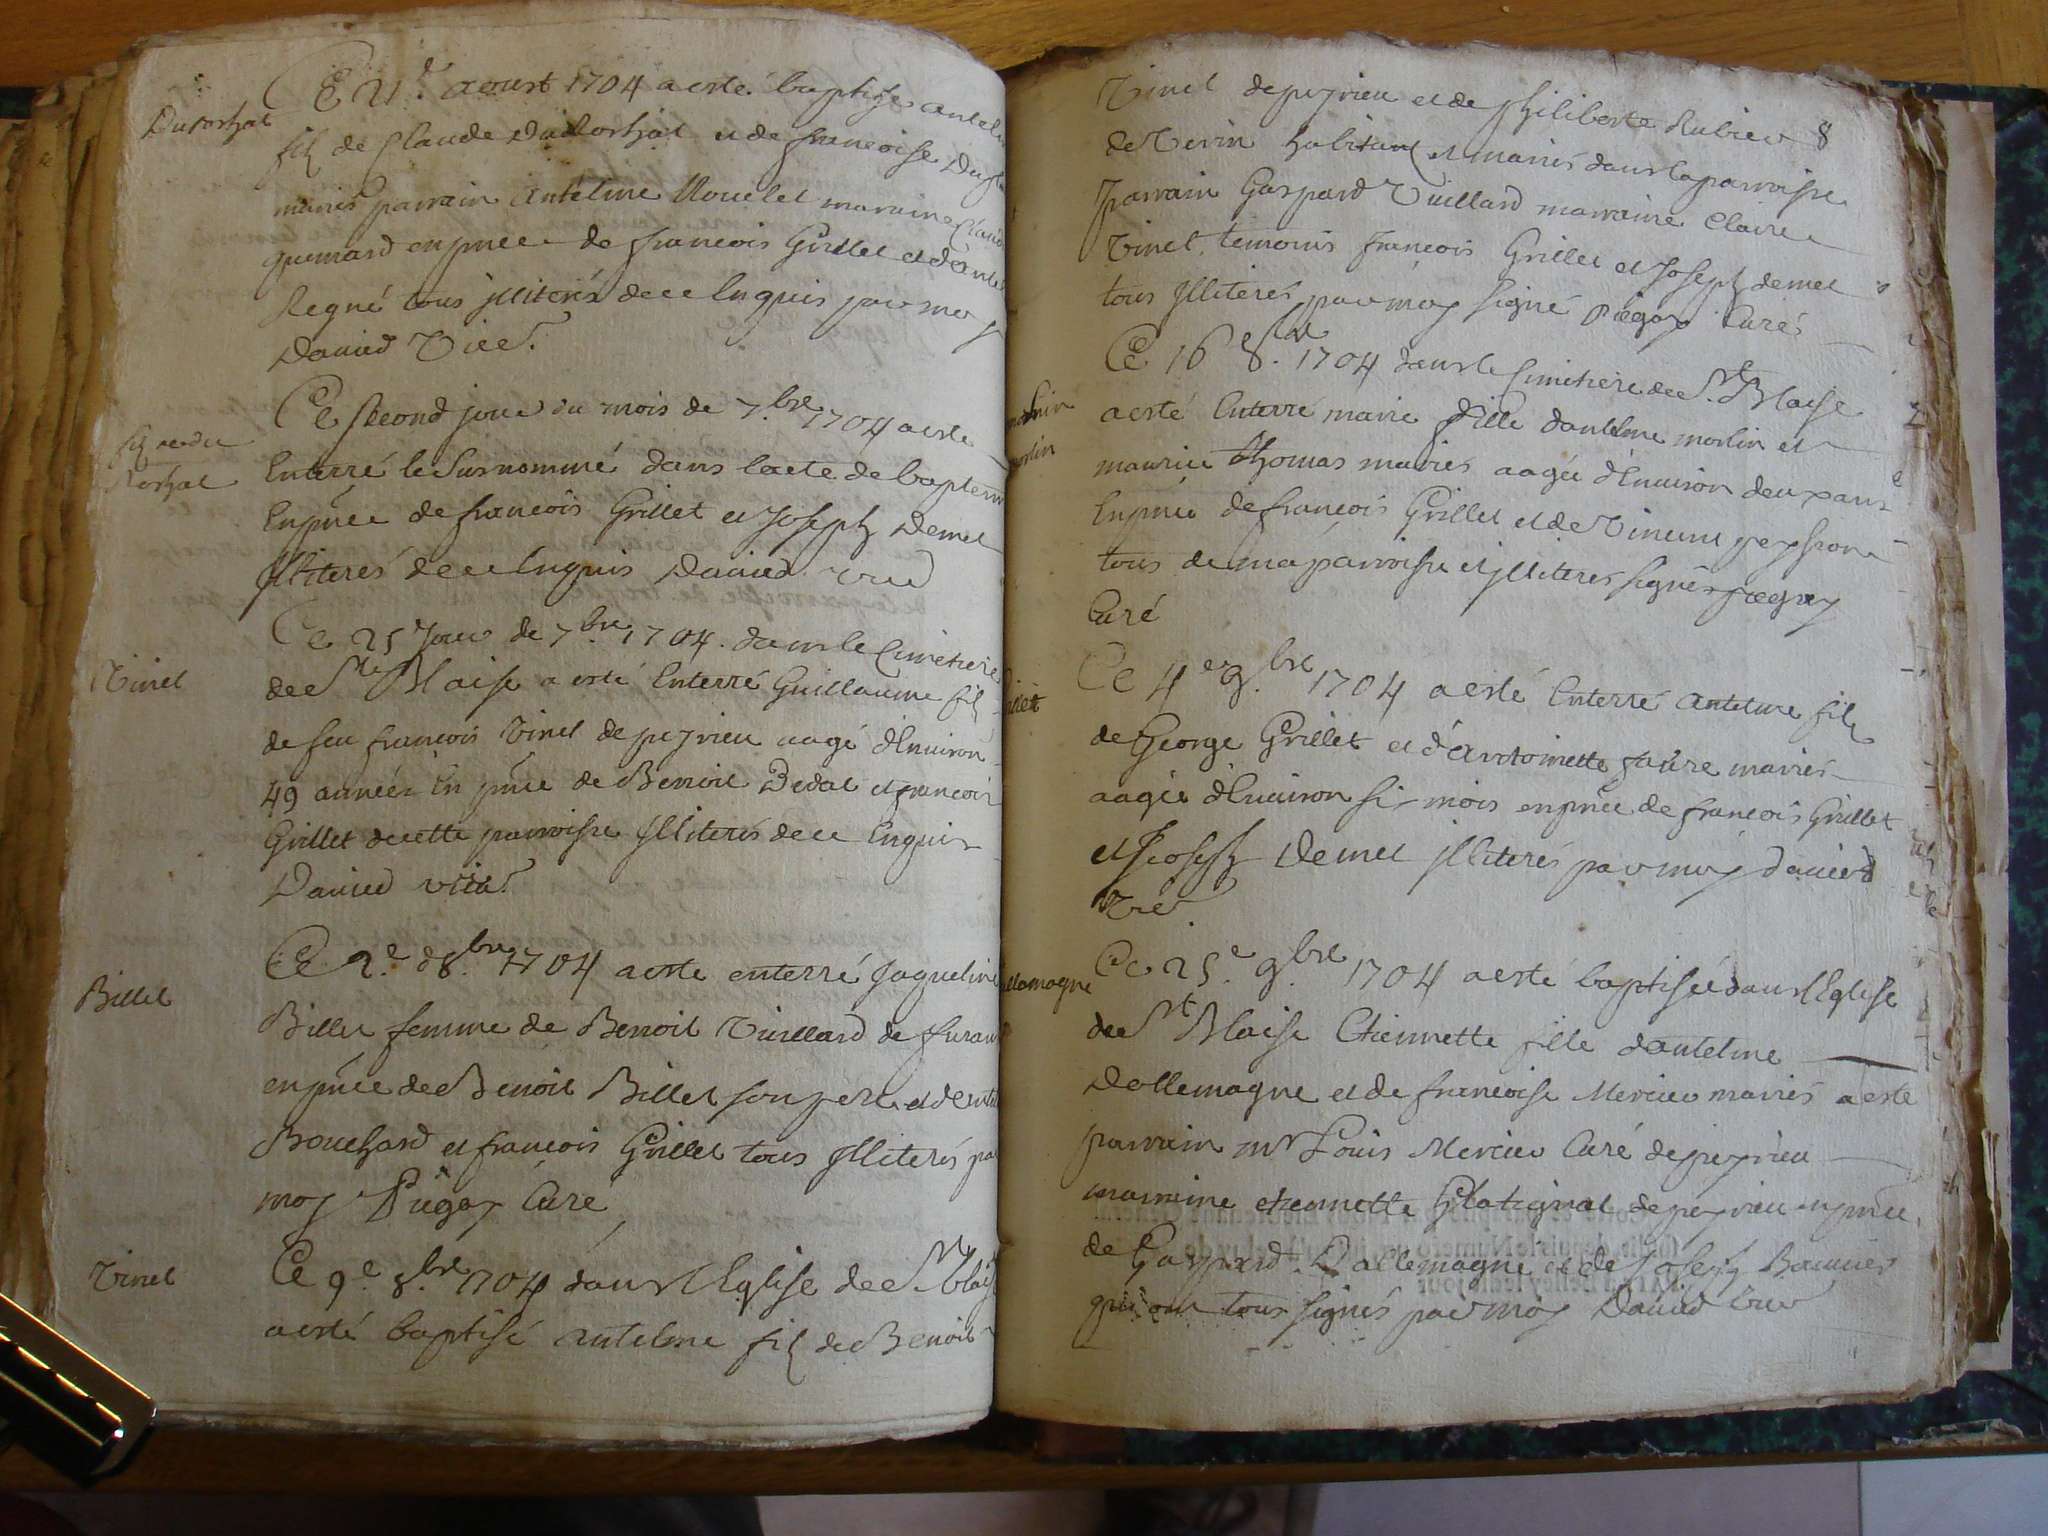 Ce 21e aoust 1704 a esté baptisé antelme
fils de Claude et de francoise
mariés parrain antelme marraine
en pnce de francois Grillet et
Regné tous jlliterés de ce Enquis par moy
Dauied Vice.
Ce second jour du mois de 7.bre 1704 a esté
Enterré le surnommé dans lacte de baptesme
En pnce de francois Grillet et Joseph Demet
Jlliterés de ce Enquis Dauied
Vinet
Ce 25 Jour de 7.bre 1704. dans le Cimetiere
de St Blaise a esté Enterré Guillaume fils
de feu francois Vinet de peyrieu aagé d'Enuiron
49 années En pnce de Benoit Bedat et francois
Grillet de cette parroisse Jlliterés de ce Enquis
Dauied
Billet
Ce 2.e d8.bre 1704 a esté enterré Jaqueline
Billet femme de Benoit Vuillard de
en pnce de Benoit Billet son pere et
Bouchard et francois Grillet tous Jlliterés par
moy Piegay Curé
Vinet
Ce 9e 8.bre 1704 dans l'Eglise de St blaise
a esté baptisé antelme fils de Benoit
8
Vinet de peyrieu et de philiberte Rubier
de Virin habitans et mariés dans la parroisse
parrain Gaspard Vuillard marraine Claire
Vinet temoins francois Grillet et Joseph demet
tous Jlliterés par moy signé Piegay Curé
morlin
Ce 16 8.bre 1704 dans le Cimetiere de St Blaise
a esté Enterré marie fille dantelme morlin et
maurice Thomas mariés aagée d'Enuiron deux ans
En pnce de francois Grillet et de Vincent peyssion
tous de ma parroisse et jlliterés signés piegay
Curé
Ce 4e 9.bre 1704 a esté Enterré antelme fils
de George Grillet et d'antoinette faure mariés
aagée d'Enuiron six mois en pnce de francois Grillet
et Joseph Demet jlliterés par moy dauied
Vice
allemagne
Ce 25.e 9.bre 1704 a esté baptisée dans l'Eglise
de St Blaise Etiennette fille dantelme
Dallemagne et de francoise Mercier mariés a esté
parrain mr Louis Mercier Curé de peyrieu
marraine etiennette Platignat de peyrieu en pnce
de Gaspard Dallemagne et de Joseph
qui ont tous signés par moy Dauied Vice